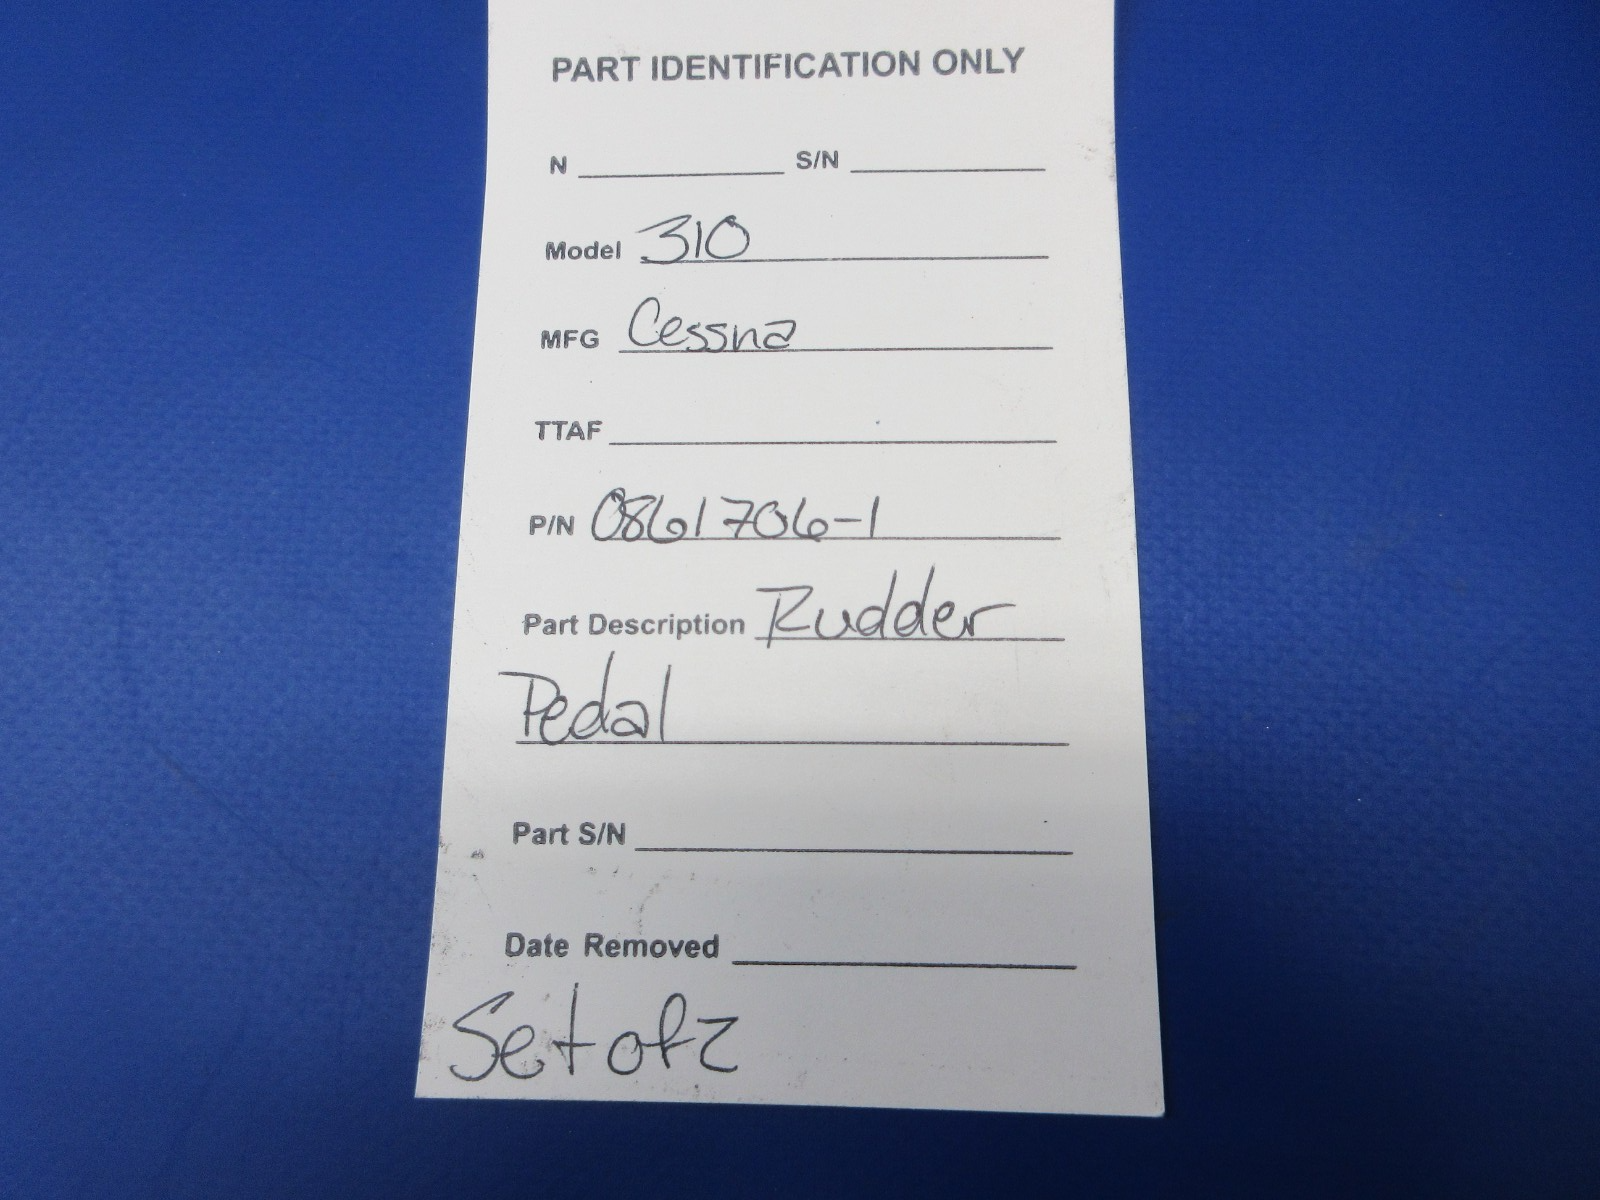 PART IDENTIFICATION ONLY
N S/N
Model 310
MFG Cessna
TTAF
P/N 0861706-1
Part Description Rudder
Pedal
Part S/N
Date Removed
Set of 2